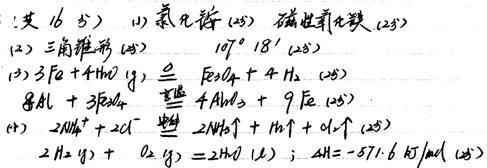 (共 16 分) (1) 氯化铵 (2分) 磁性氧化铁 (2分)
(2) 三角锥形 (2分) 107° 18′ (2分)
(3) 3Fe + 4H₂O (g) ≜ Fe₃O₄ + 4 H₂ (2分)
8Al + 3Fe₃O₄ 高温 4Al₂O₃ + 9 Fe (2分)
(4) 2NH₄⁺ + 2Cl⁻ 电解 2NH₃↑ + H₂↑ + Cl₂↑ (2分)
2H₂(g) + O₂(g) = 2H₂O (l) ; ΔH = -571.6 kJ/mol (2分)